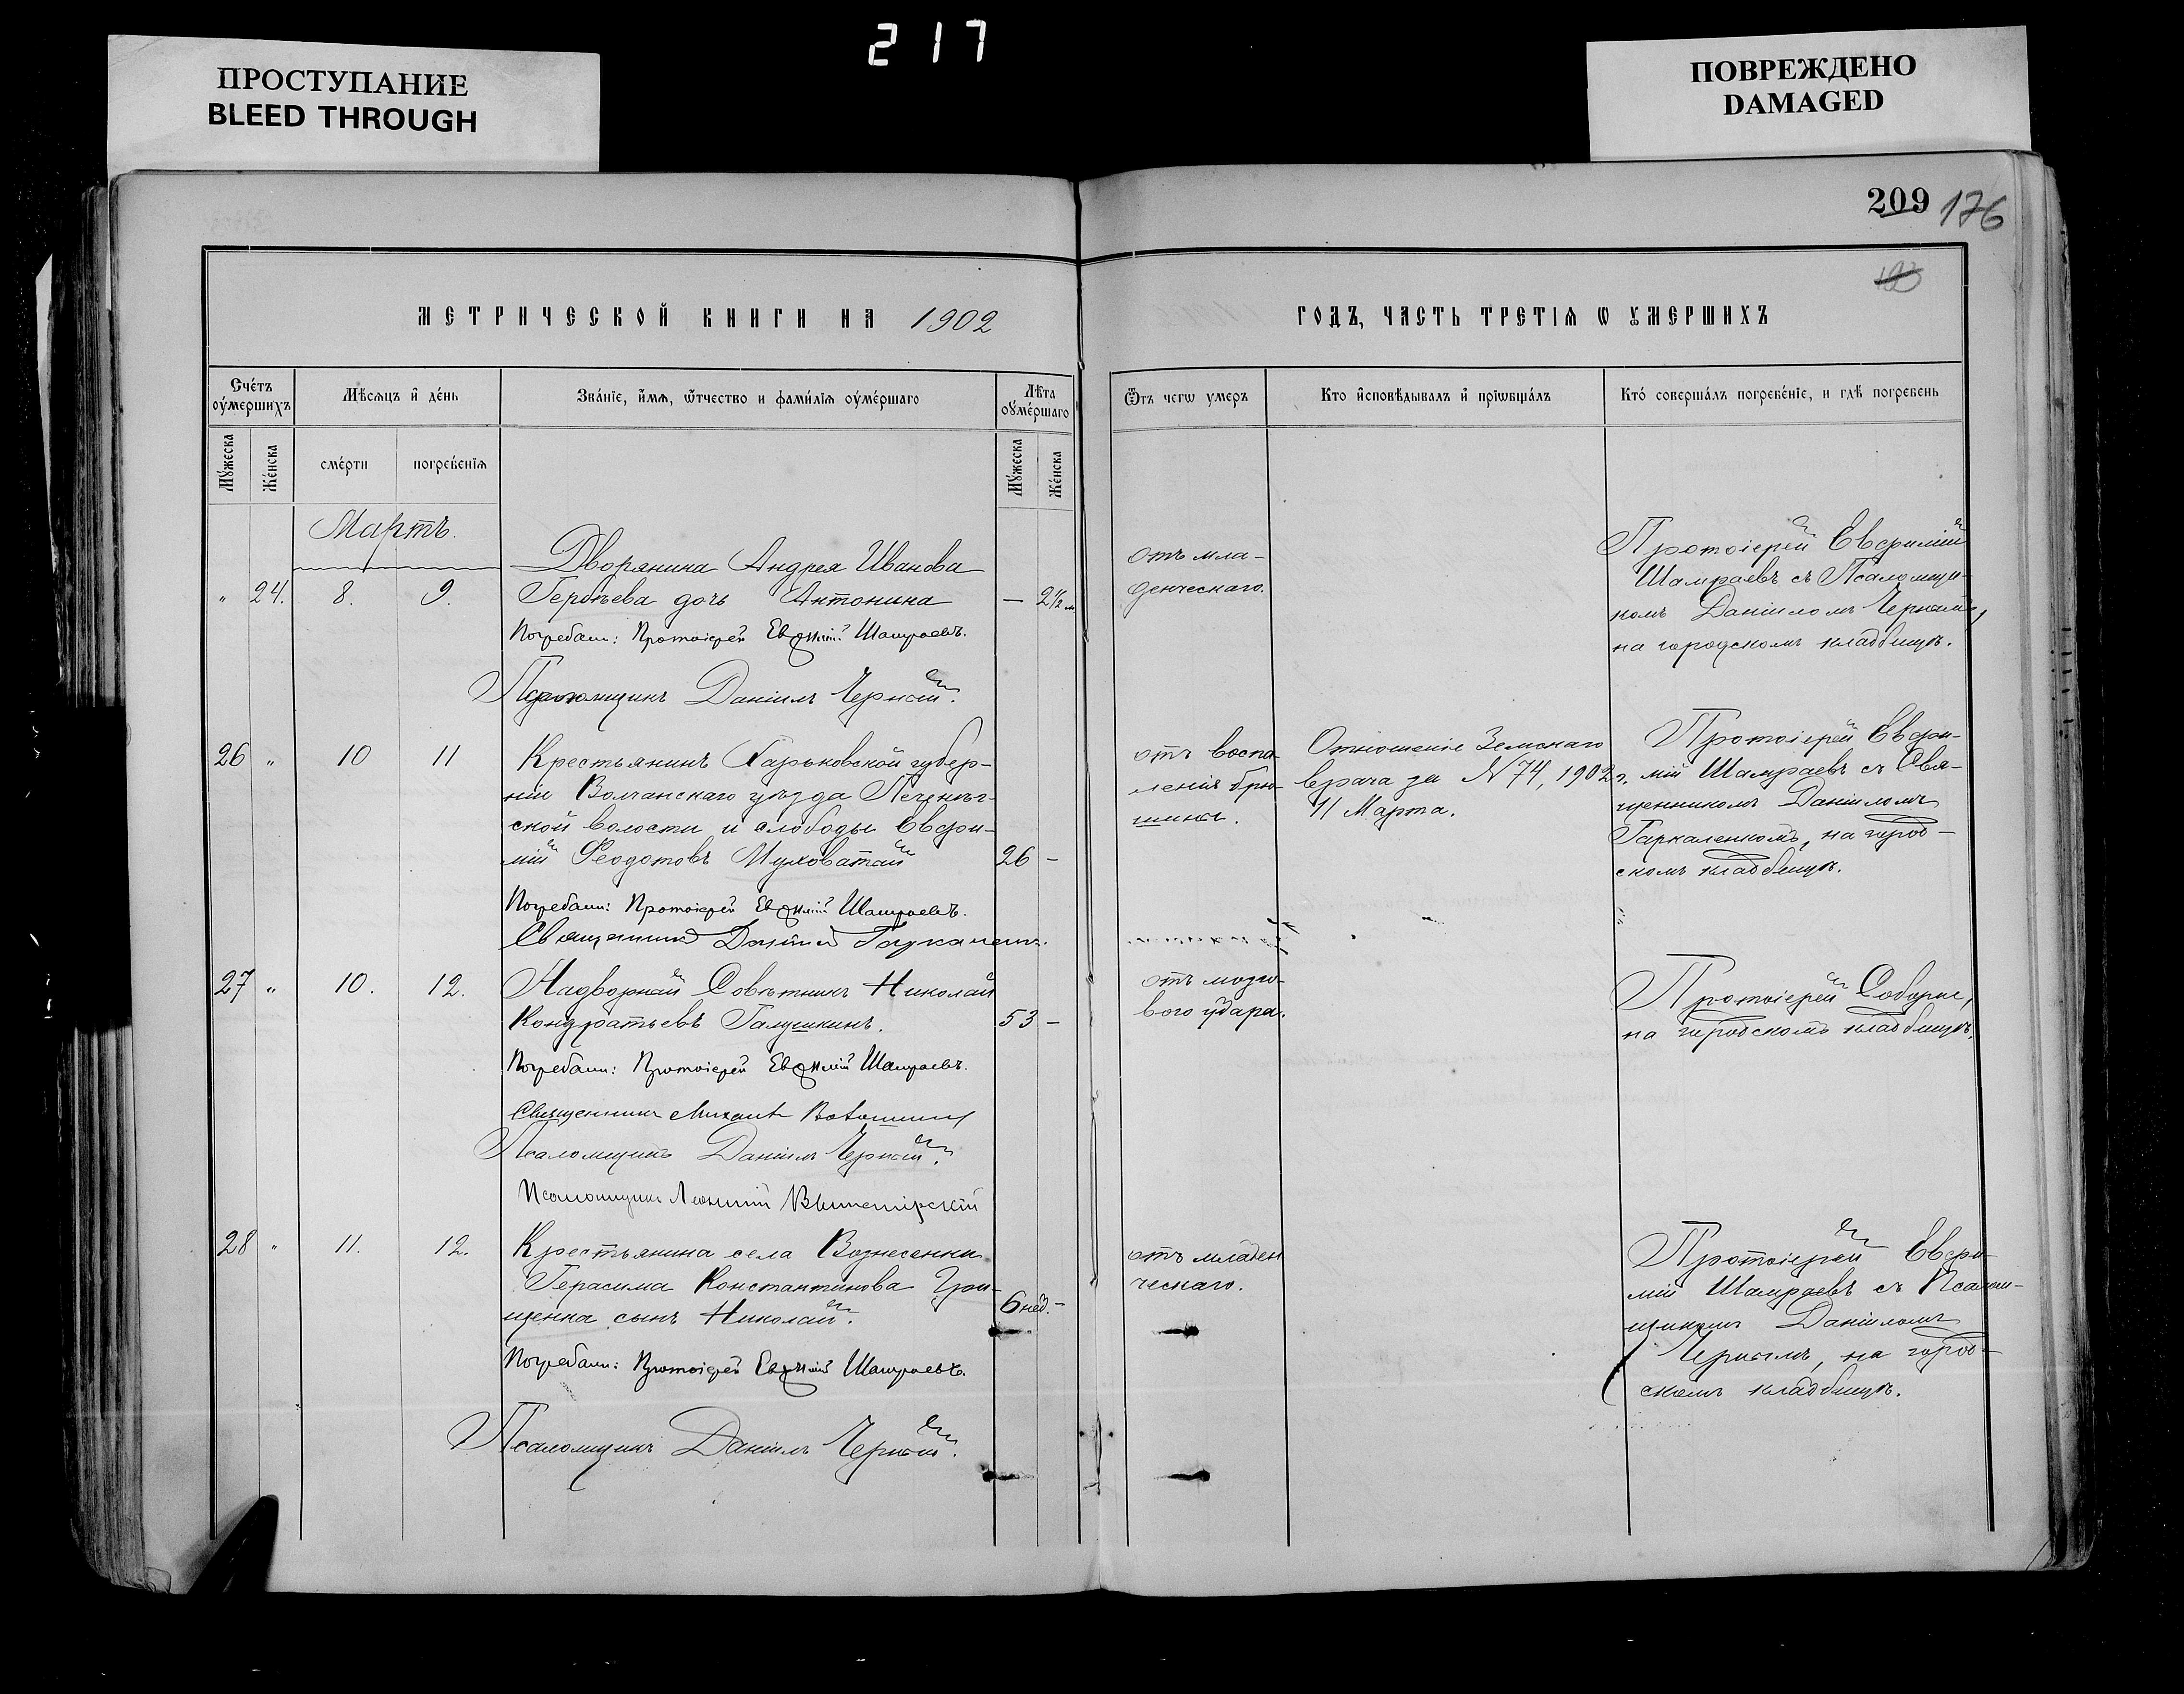 217
ПРОСТУПАНИЕ
BLEED THROUGH
ПОВРЕЖДЕНО
DAMAGED
209 176
МЕТРИЧЕСКОЙ КНИГИ НА 1902
ГОДЪ, ЧАСТЬ ТРЕТІЯ Ѡ ѸМЕРШИХЪ
Сче́тъ оу҆ме́ршихъ
Мѣ́сяцъ и҆ де́нь
Зва́нїе, и҆́мѧ, ѿтчество и фами́лїѧ оу҆ме́ршаго
Лѣ́та оу҆ме́ршаго
Ѿтъ чегѡ умеръ
Кто и҆сповѣ́дывалъ и҆ прїѡбща́лъ
Кто́ соверша́лъ погребе́нїе, и гдѣ̀ погребенъ
Мꙋ́жеска
Же́нска
сме́рти
погребе́нїѧ
Мꙋ́жеска
Же́нска
Мартъ.
" 24. 8. 9.
Дворянина Андрея Иванова
дочь Антонина
— 2½ м
Погребали: Протоіерей Евѳимій Шамраевъ.
Псаломщикъ Даніилъ Черный.
отъ мла-
денческаго.
Протоіерей Евѳимій
Шамраевъ съ Псаломщи-
комъ Даніиломъ Чернымъ,
на городскомъ кладбищѣ.
26 " 10 11
Крестьянинъ Харьковской губер-
ніи Волчанскаго уѣзда Печенѣг-
ской волости и слободы Евѳи-
мій Ѳеодотовъ Муховатый
26 -
Погребали: Протоіерей Евѳимій Шамраевъ.
Священникъ Даніилъ
отъ воспа-
ленія брю-
шины.
Отношеніе Земскаго
врача за N 74, 1902 г.
11 Марта.
Протоіерей Евѳи-
мій Шамраевъ съ Свя-
щенникомъ Даніиломъ
Гаркаленкомъ, на город-
скомъ кладбищѣ.
27 " 10. 12.
Надворный Совѣтникъ Николай
Кондратьевъ Галушкинъ.
53 -
Погребали: Протоіерей Евѳимій Шамраевъ.
Священникъ Михаилъ
Псаломщикъ Даніилъ Черный.
Псаломщикъ Леонтій
отъ мозго-
вого удара.
Протоіерей Соборне,
на городскомъ кладбищѣ.
28 " 11. 12.
Крестьянина села Вознесенки
Герасима Константинова Гри-
щенка сынъ Николай.
6 нед. -
Погребали: Протоіерей Евѳимій Шамраевъ.
Псаломщикъ Даніилъ Черный.
отъ младен
ческаго.
Протоіерей Евѳи-
мій Шамраевъ съ Псалом-
щикомъ Даніиломъ
Чернымъ, на город-
скомъ кладбищѣ.